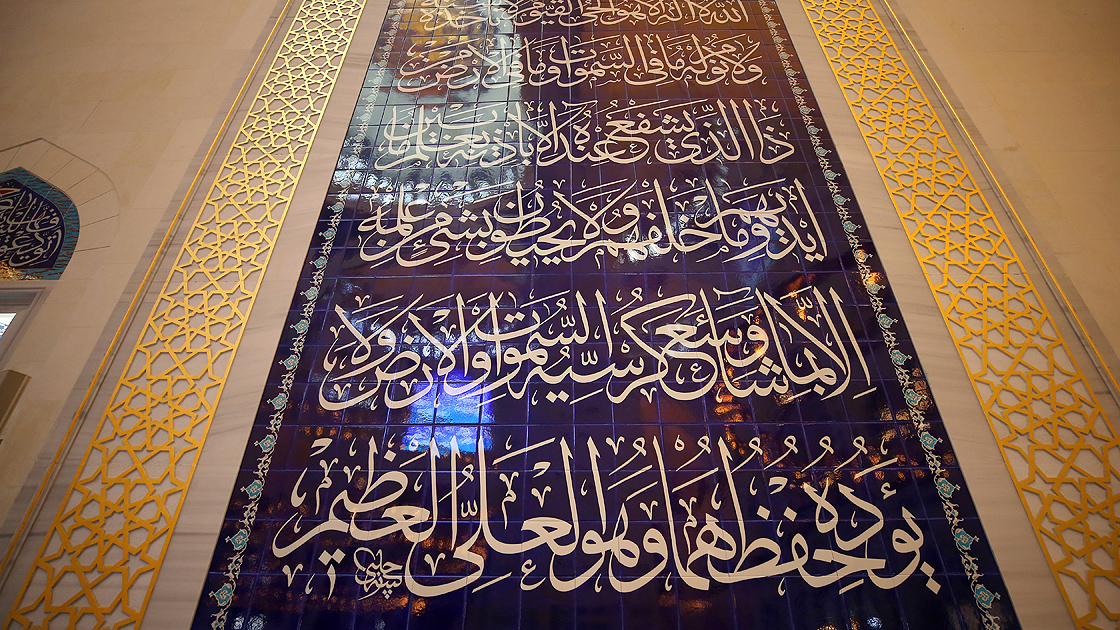 الله لا اله الا هو الحي القيوم لا تأخذه
ولا نوم له ما في السموت وما في الارض
ذا الذي يشفع عنده الا باذنه يعلم ما بين
ايديهم وما خلفهم ولا يحيطون بشئ من علمه
الا بما شاء وسع كرسيه السموات والارض ولا
يؤده حفظهما وهو العلي العظيم